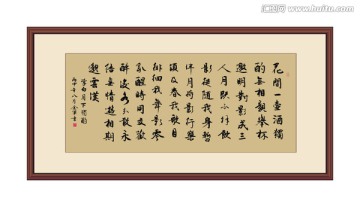 花間一壺酒獨
酌無相親舉杯
邀明對影成三
人月既不解飲
影徒隨我身暫
伴月將影行樂
須及春我歌月
徘徊我舞影零
亂醒時同交歡
醉後各分散永
結無情遊相期
邈雲漢
李白月下獨酌